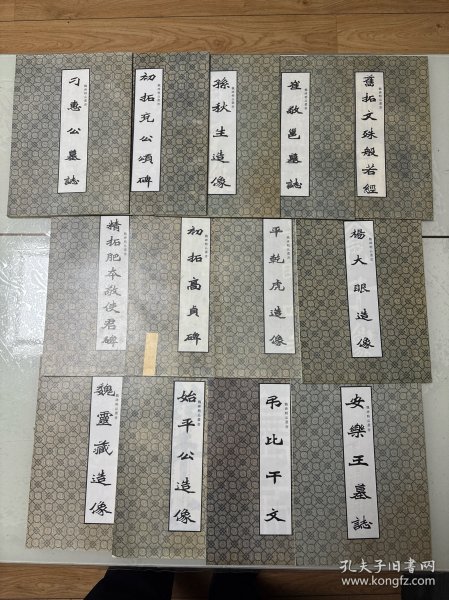 刁惠公墓誌
初拓兖公頌碑
孫秋生造像
崔敬邕墓誌
舊拓文殊般若經
精拓肥本敬使君碑
初拓高貞碑
平乾虎造像
楊大眼造像
魏靈藏造像
始平公造像
弔比干文
安樂王墓誌
孔夫子旧书网
www.kongfz.com